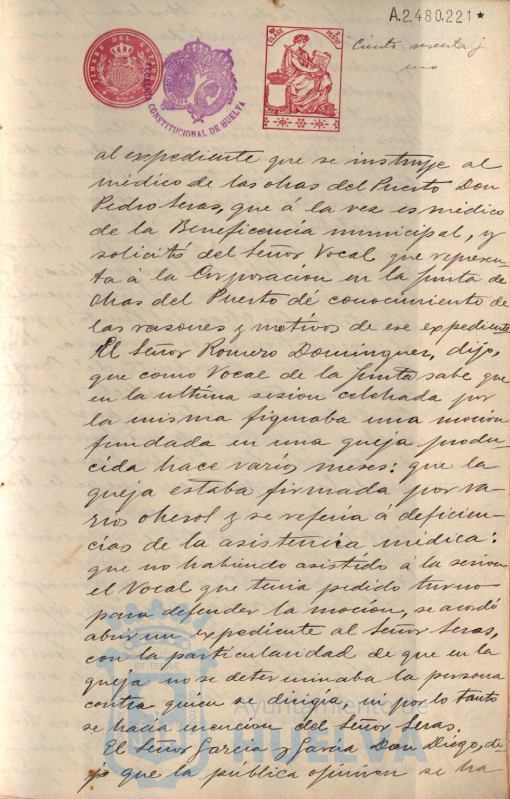 A.2.480.221*
TIMBRE DEL ESTADO
CONSTITUCIONAL DE HUELVA
Ciento sesenta y
uno
al expediente que se instruye al
médico de las obras del Puerto Don
Pedro Seras, que á la vez es médico
de la Beneficencia municipal, y
solicitó del Señor Vocal que represen-
ta á la Corporación en la Junta de
Obras del Puerto dé conocimiento de
las razones y motivos de ese expediente
El Señor Romero Dominguez, dijo,
que como Vocal de la Junta sabe que
en la ultima sesion celebrada por
la misma figuraba una mocion
fundada en una queja produ-
cida hace varios meses: que la
queja estaba firmada por va-
rios obreros y se referia á deficien-
cias de la asistencia médica:
que no habiendo asistido á la sesion
el Vocal que tenia pedido turno
para defender la mocion, se acordó
abrir un expediente al Señor Seras,
con la particularidad de que en la
queja no se determinaba la persona
contra quien se dirigía, ni por lo tanto
se hacia mencion del Señor Seras.
El Señor Garcia y Garcia Don Diego, di-
jo que la pública opinion se ha
Ayuntamiento de
HUELVA